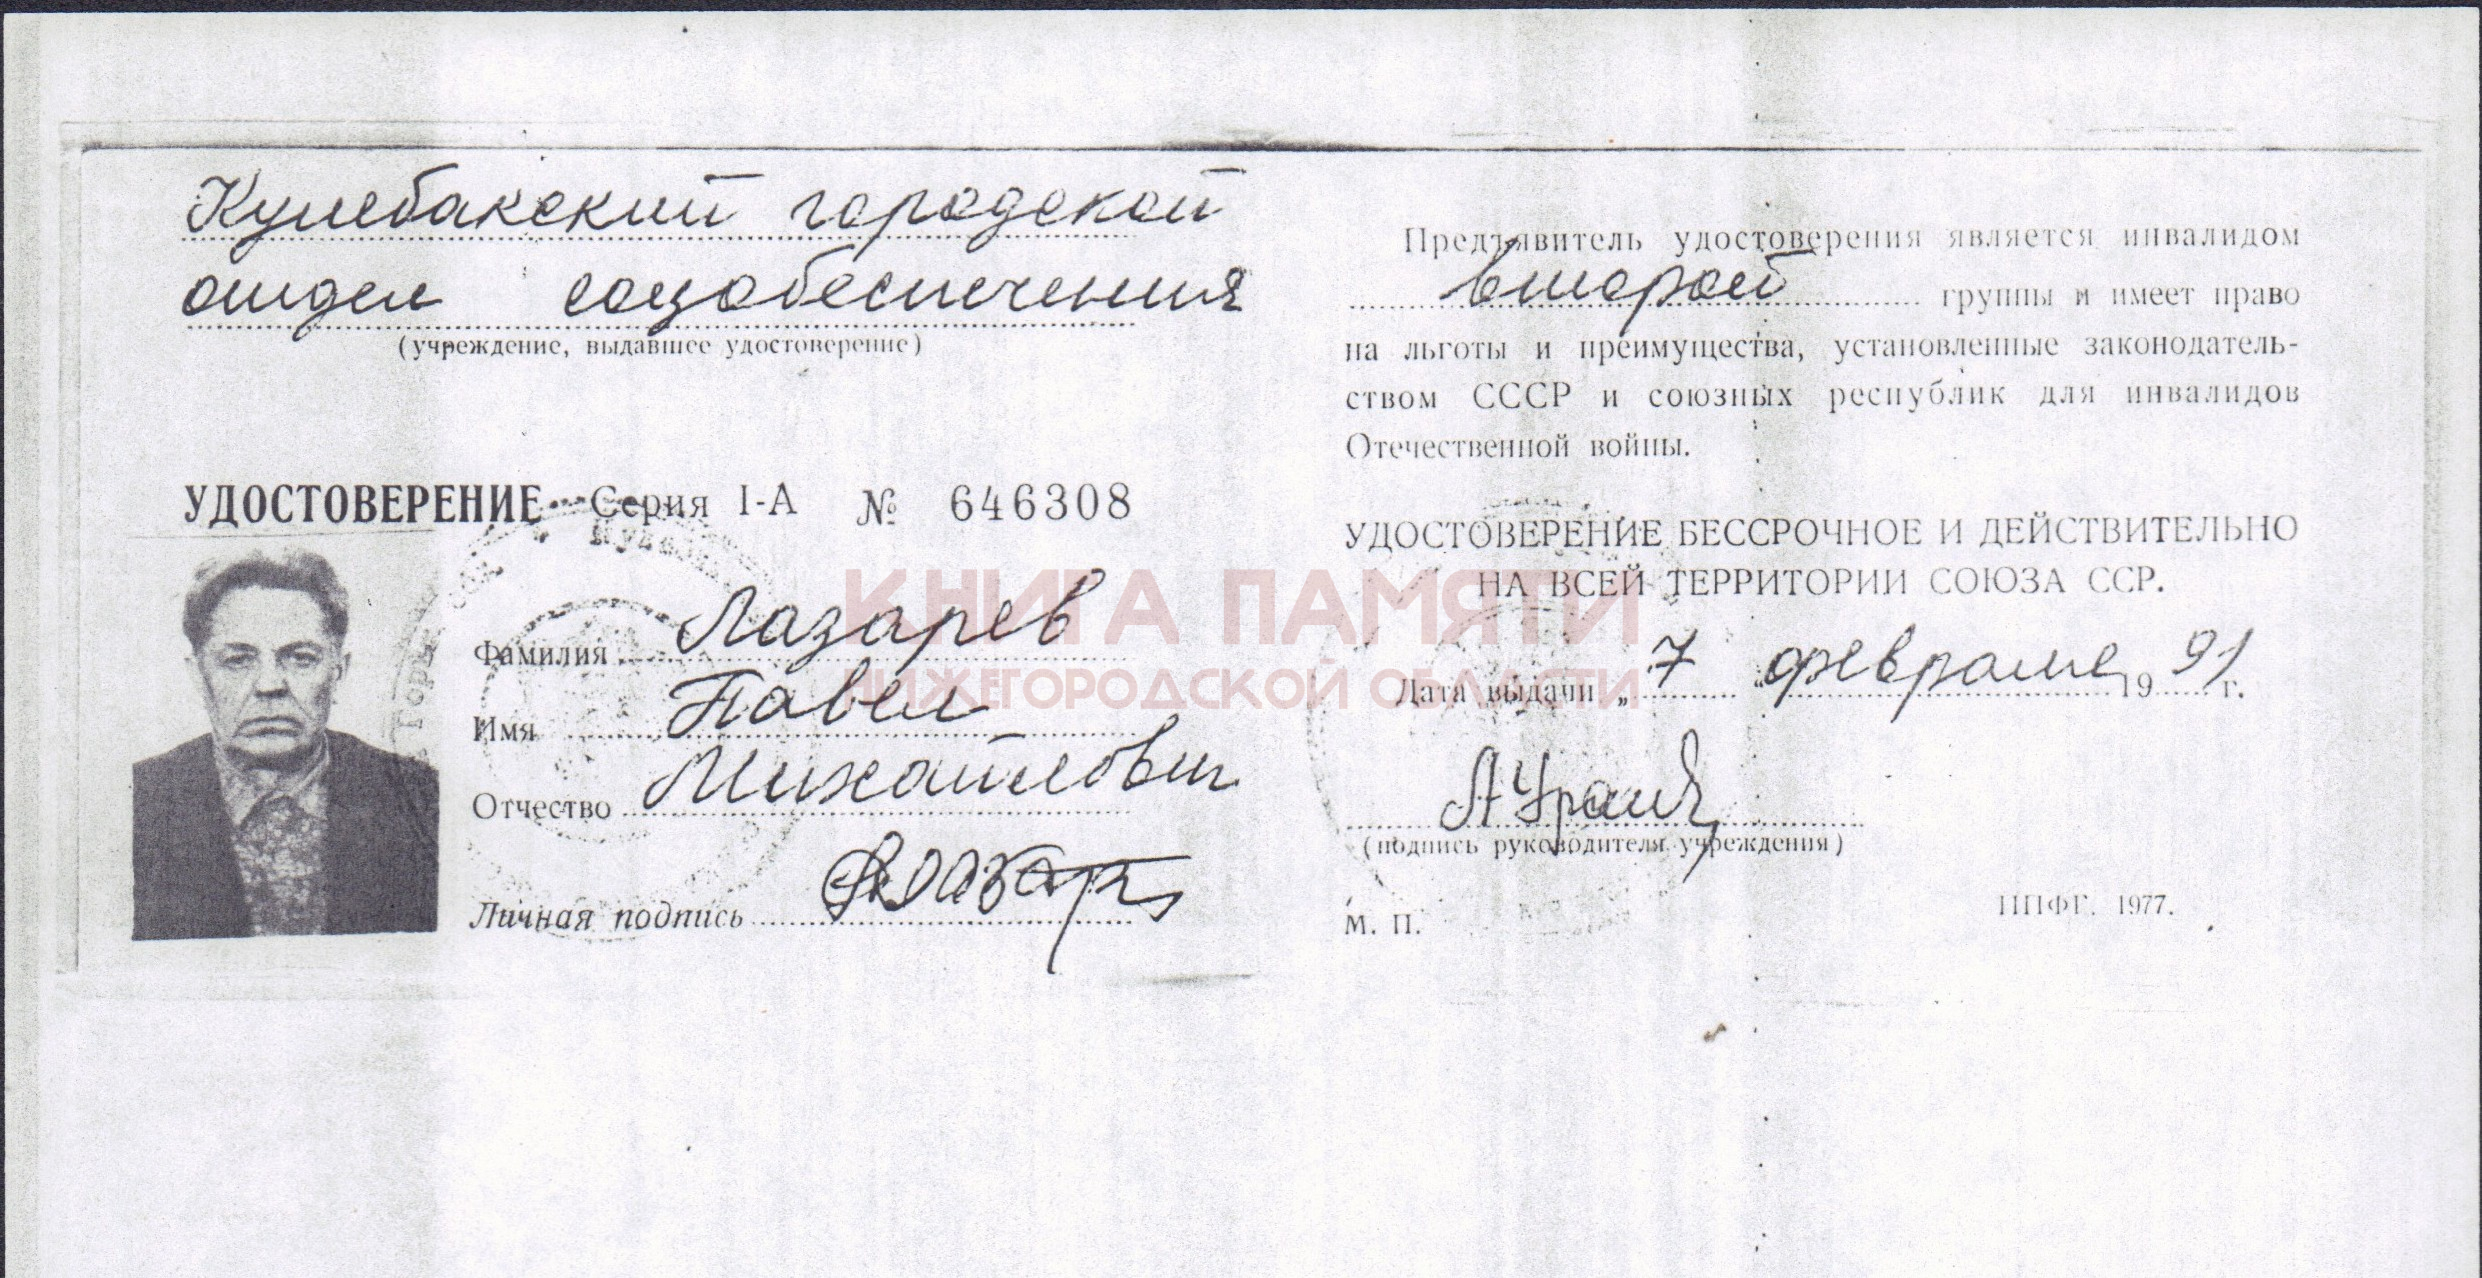 Кулебакский городской
отдел соцобеспечения
(учреждение, выдавшее удостоверение)
УДОСТОВЕРЕНИЕ Серия I-А № 646308
КНИГА ПАМЯТИ
НИЖЕГОРОДСКОЙ ОБЛАСТИ
Фамилия Лазарев
Имя Павел
Отчество Михайлович
Личная подпись
Предъявитель удостоверения является инвалидом
второй группы и имеет право
на льготы и преимущества, установленные законодатель-
ством СССР и союзных республик для инвалидов
Отечественной войны.
УДОСТОВЕРЕНИЕ БЕССРОЧНОЕ И ДЕЙСТВИТЕЛЬНО
НА ВСЕЙ ТЕРРИТОРИИ СОЮЗА ССР.
Дата выдачи „ 7 “ февраля 1991 г.
(подпись руководителя учреждения)
М. П.
ППФГ. 1977.